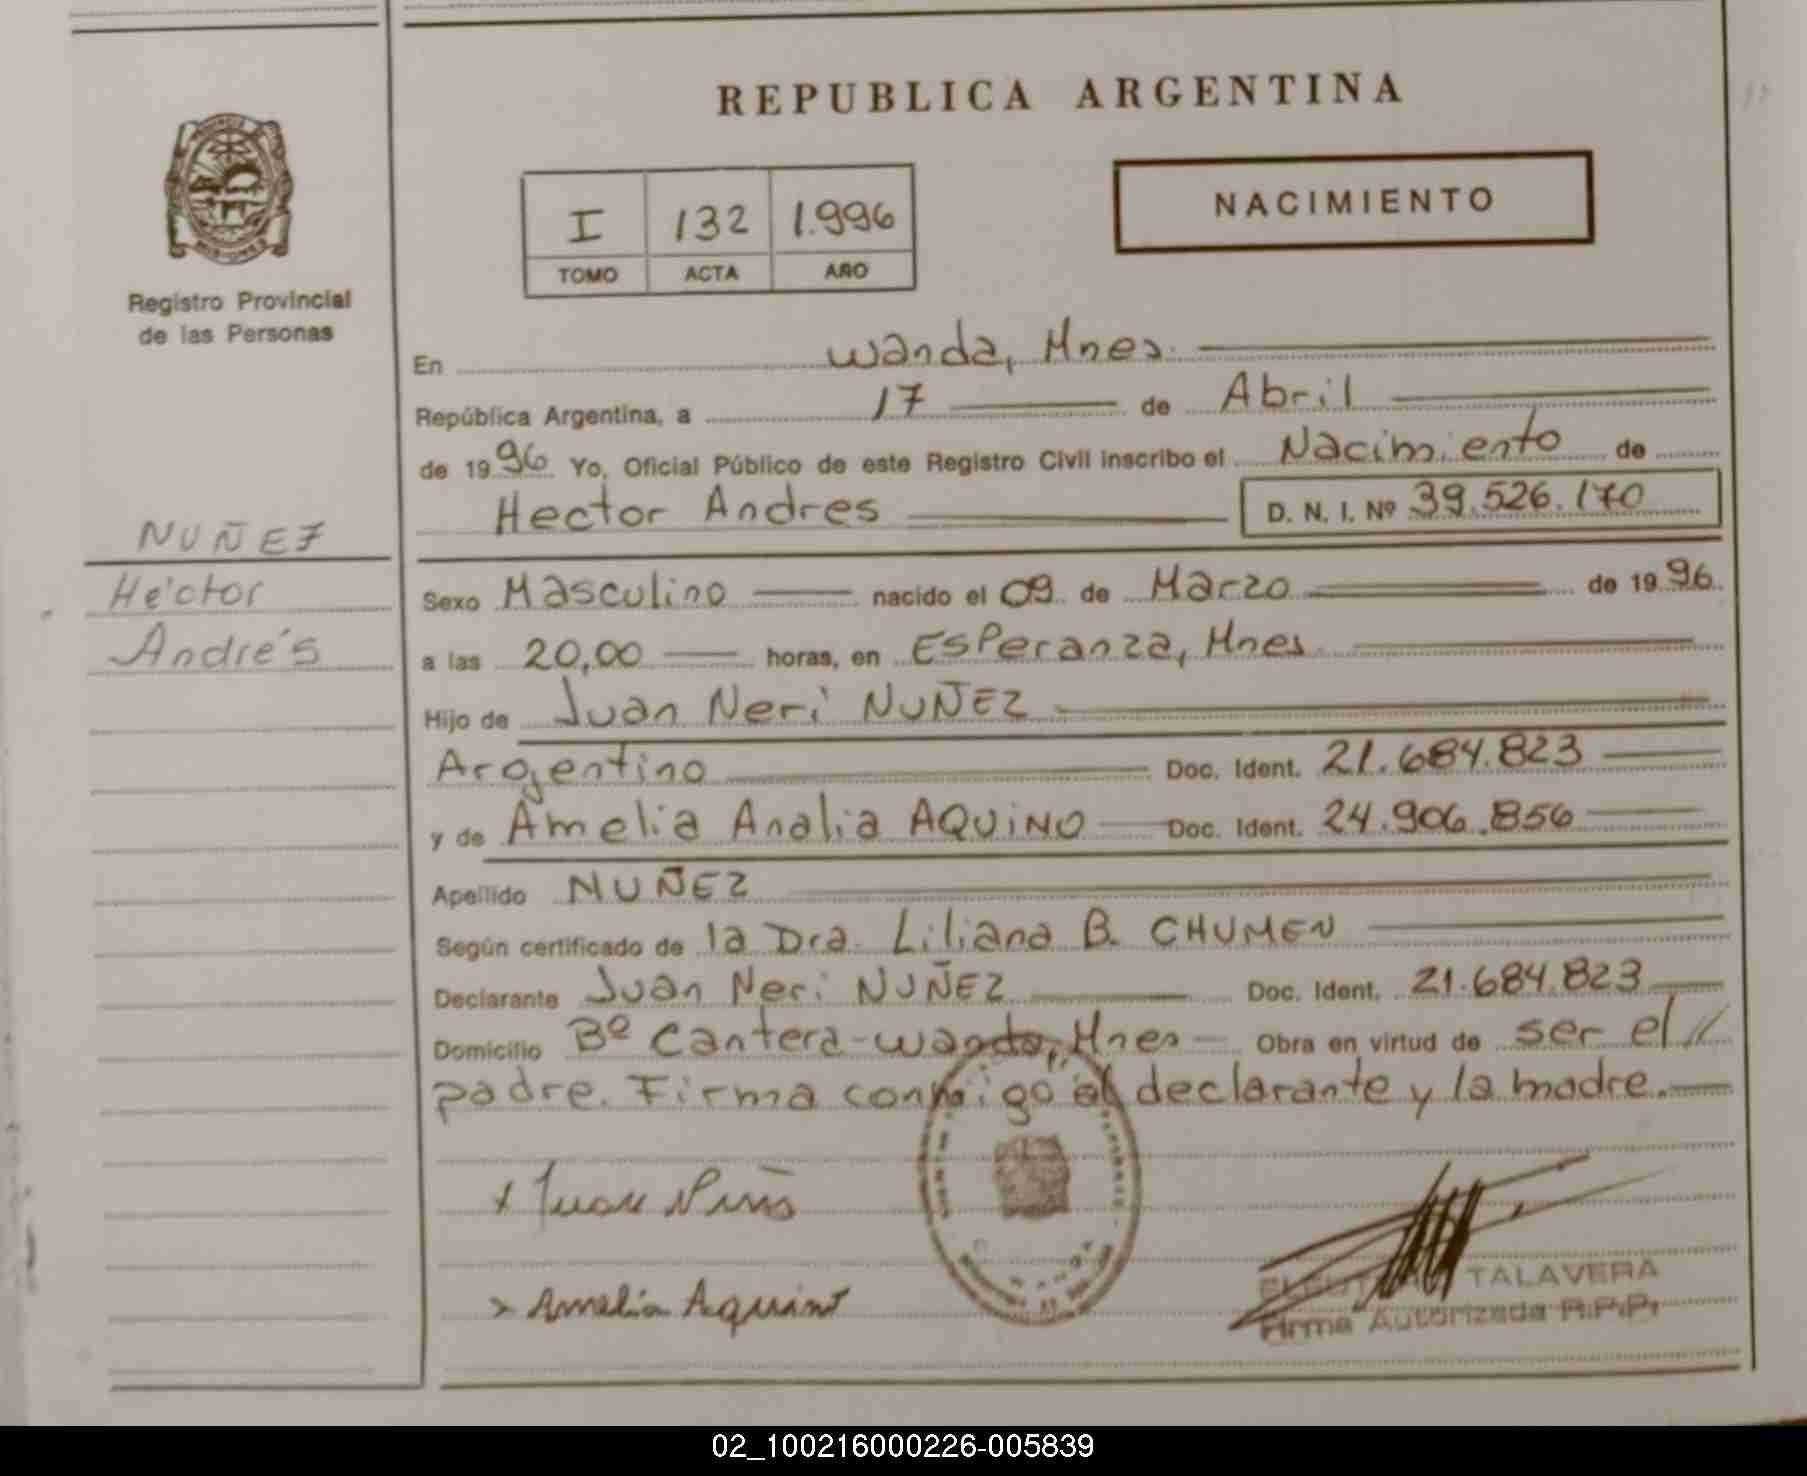 REPUBLICA ARGENTINA
I 132 1.996
TOMO ACTA AÑO
NACIMIENTO
Registro Provincial
de las Personas
NUÑEZ
Héctor
Andrés
En Wanda, Mnes.
República Argentina, a 17 de Abril
de 1996 Yo, Oficial Público de este Registro Civil inscribo el Nacimiento de
Hector Andres D. N. I. Nº 39.526.170
Sexo Masculino nacido el 09 de Marzo de 1996.
a las 20,00 horas, en Esperanza, Mnes.
Hijo de Juan Neri NUÑEZ
Argentino Doc. Ident. 21.684.823
y de Amelia Analia AQUINO Doc. Ident. 24.906.856
Apellido NUÑEZ
Según certificado de la Dra. Liliana B. CHUMEN
Declarante Juan Neri NUÑEZ Doc. Ident. 21.684.823
Domicilio Bº Cantera-Wanda, Mnes Obra en virtud de ser el //
padre. Firma conmigo el declarante y la madre.
Juan
Amelia Aquino
TALAVERA
Firma Autorizada R.P.P.
02_100216000226-005839